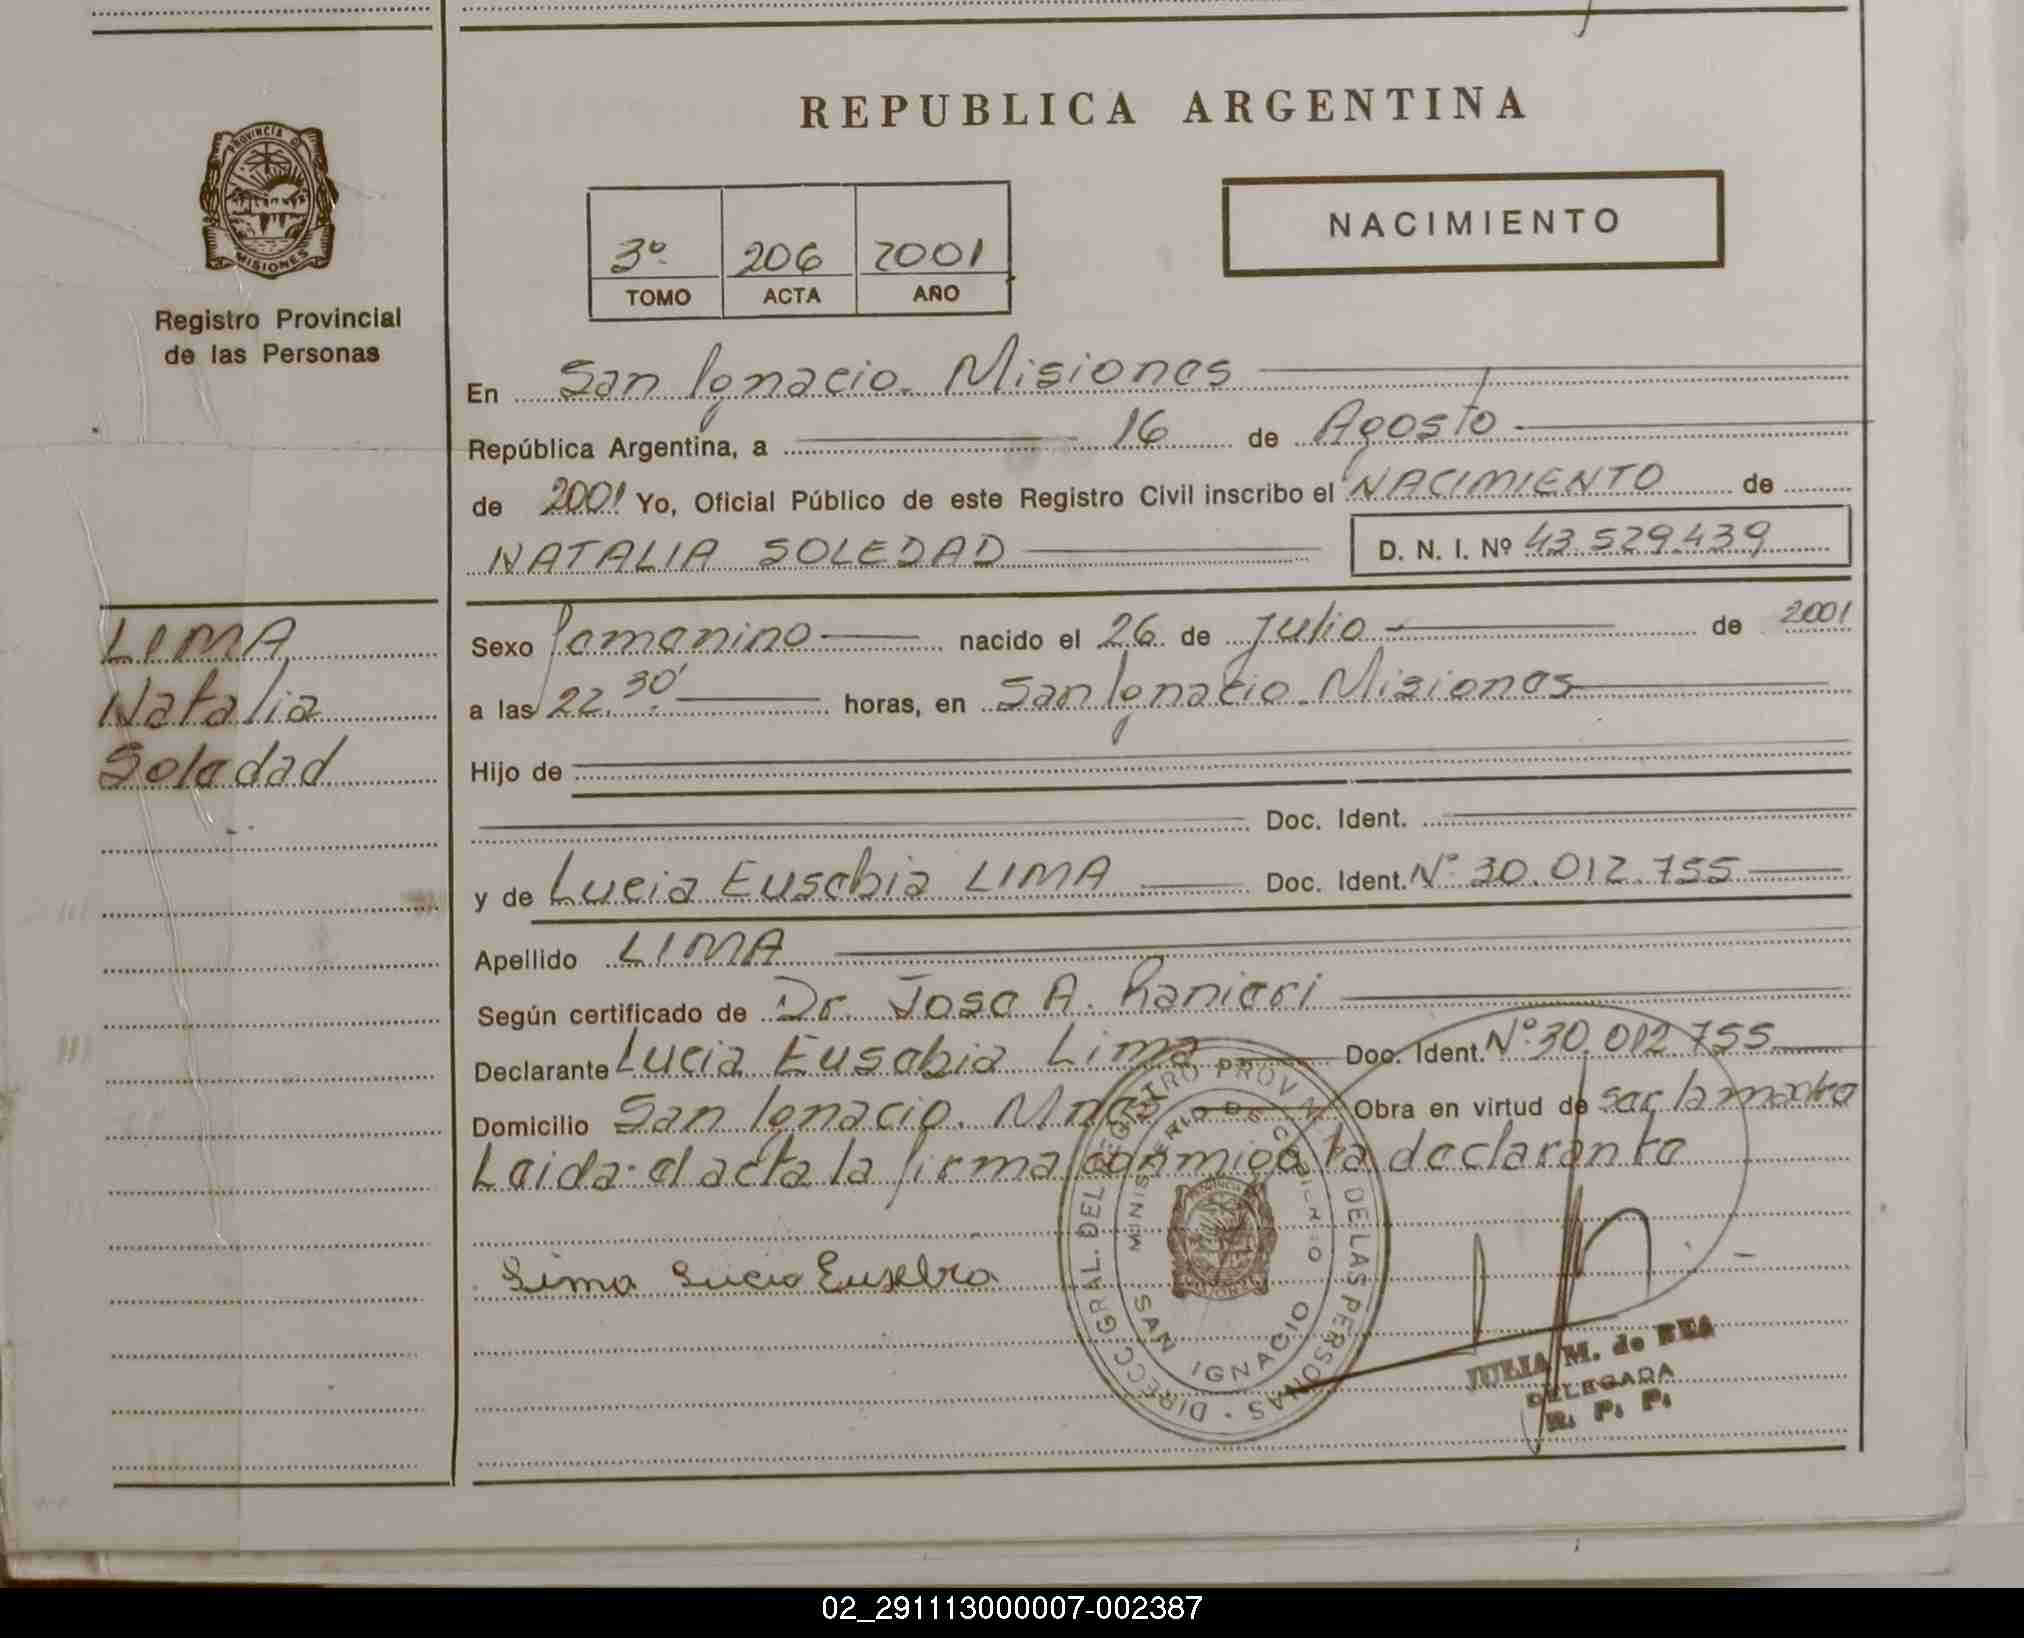 PROVINCIA D
MISIONES
Registro Provincial
de las Personas
REPUBLICA ARGENTINA
NACIMIENTO
3º 206 2001
TOMO ACTA AÑO
En San Ignacio. Misiones
República Argentina, a 16 de Agosto
de 2001 Yo, Oficial Público de este Registro Civil inscribo el NACIMIENTO de
NATALIA SOLEDAD D. N. I. Nº 43.529.439
LIMA
Natalia
Soledad
Sexo femenino nacido el 26 de Julio de 2001
a las 22.30' horas, en San Ignacio. Misiones
Hijo de
Doc. Ident.
y de Lucia Eusebia LIMA Doc. Ident. Nº 30.012.755
Apellido LIMA
Según certificado de Dr. Jose A. Ranieri
Declarante Lucia Eusebia Lima Doc. Ident. Nº 30.012.755
Domicilio San Ignacio. Mnes Obra en virtud de ser la madre
Leida el acta la firma conmigo la declarante
Lima Lucia Eusebia
DIRECC. GRAL. DEL REGISTRO PROVINCIAL DE LAS PERSONAS
MINISTERIO DE GOBIERNO
SAN IGNACIO
JULIA M. de REA
DELEGADA
R. P. P.
02_291113000007-002387